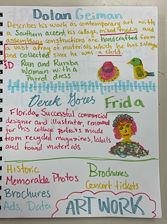 Dolan Geiman
Describes his work as contemporary art with
a Southern accent his collage, mixed media and
assemblage constructions are handcrafted from
a vast array of materials which he has salvaged
and collected since he was a child.
3D Run and Rumba
Woman with a
Floral dress
Derek Gores Frida
Florida, Successful commercial
designer and illustrator, renowned
for this collage portraits made
from recycled magazines, labels
and found materials.
Historic Brochures
Memorable Photos Concert tickets
Brochures
Ads, Data ART WORK